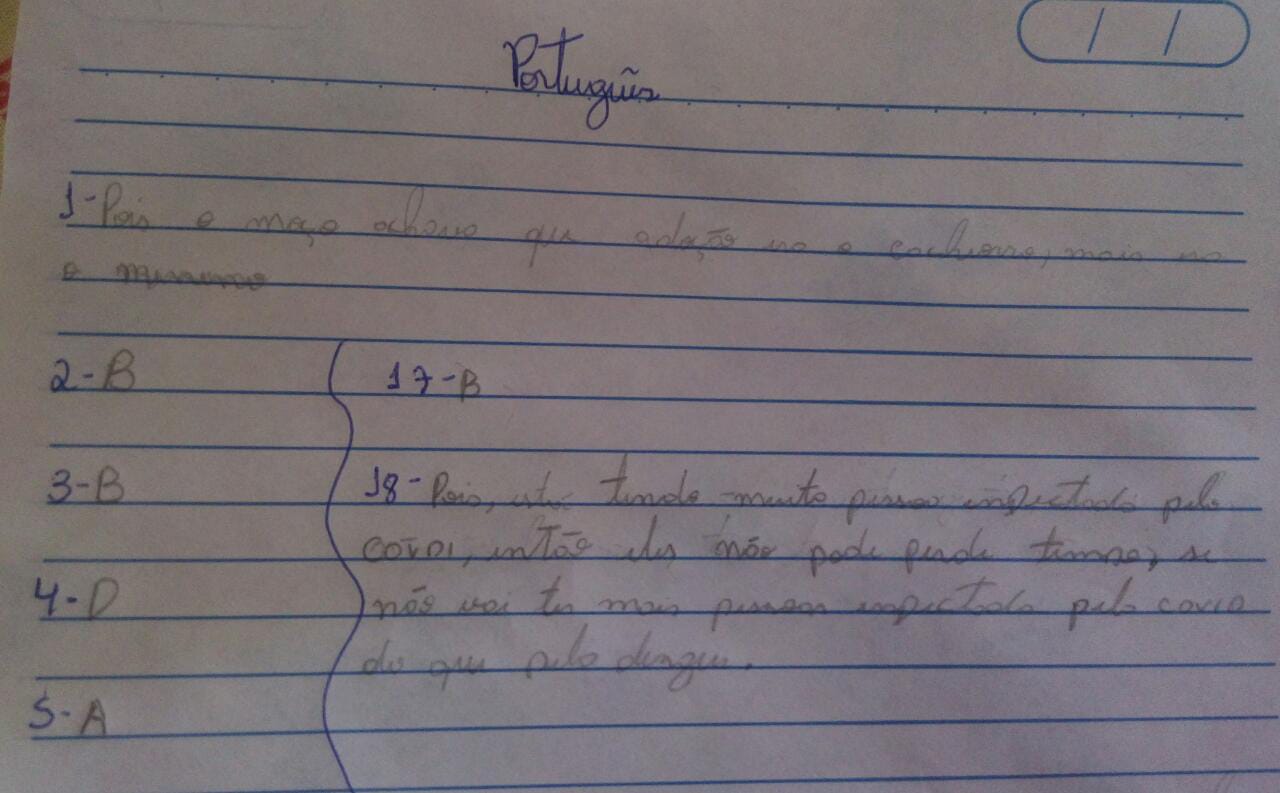 Português
1- Pois o moço achava que adoção no o cachorro, mais no
o menino
2- B
3- B
4- D
5- A
17- B
18- Pois, está tendo muito pessoas infectado pelo
covai, então eles não pode perde tempo, se
não vai ter mais pessoas infectado pelo covid
do que pelo dengue.